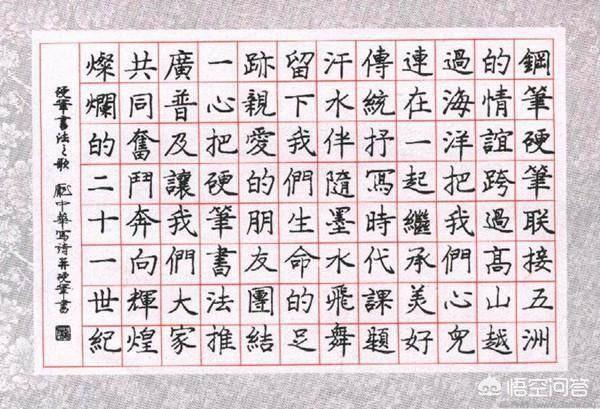 鋼筆硬筆聯接五洲
的情誼跨過高山越
過海洋把我們心兒
連在一起繼承美好
傳統抒寫時代課題
汗水伴隨墨水飛舞
留下我們生命的足
跡親愛的朋友團結
一心把硬筆書法推
廣普及讓我們大家
共同奮鬥奔向輝煌
燦爛的二十一世紀
硬筆書法之歌 龐中華寫詩并硬筆書
悟空问答